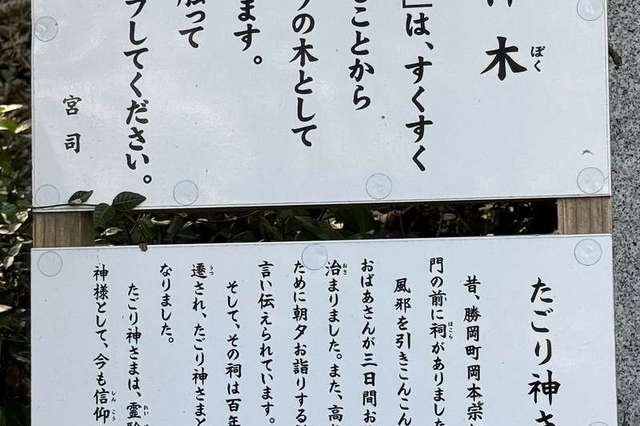 神木
ぼく
」は、すくすく
ことから
りの木として
ます。
触って
してください。
宮司
たごり神さ
昔、勝岡町岡本宗
門の前に祠がありました
ほこら
風邪を引きこんこん
おばあさんが三日間お
治まりました。また、高
おさ
ために朝夕お詣りする
言い伝えられています。
そして、その祠は百年
遷され、たごり神さまと
うつ
なりました。
たごり神さまは、霊験
れい
神様として、今も信仰
しんこう